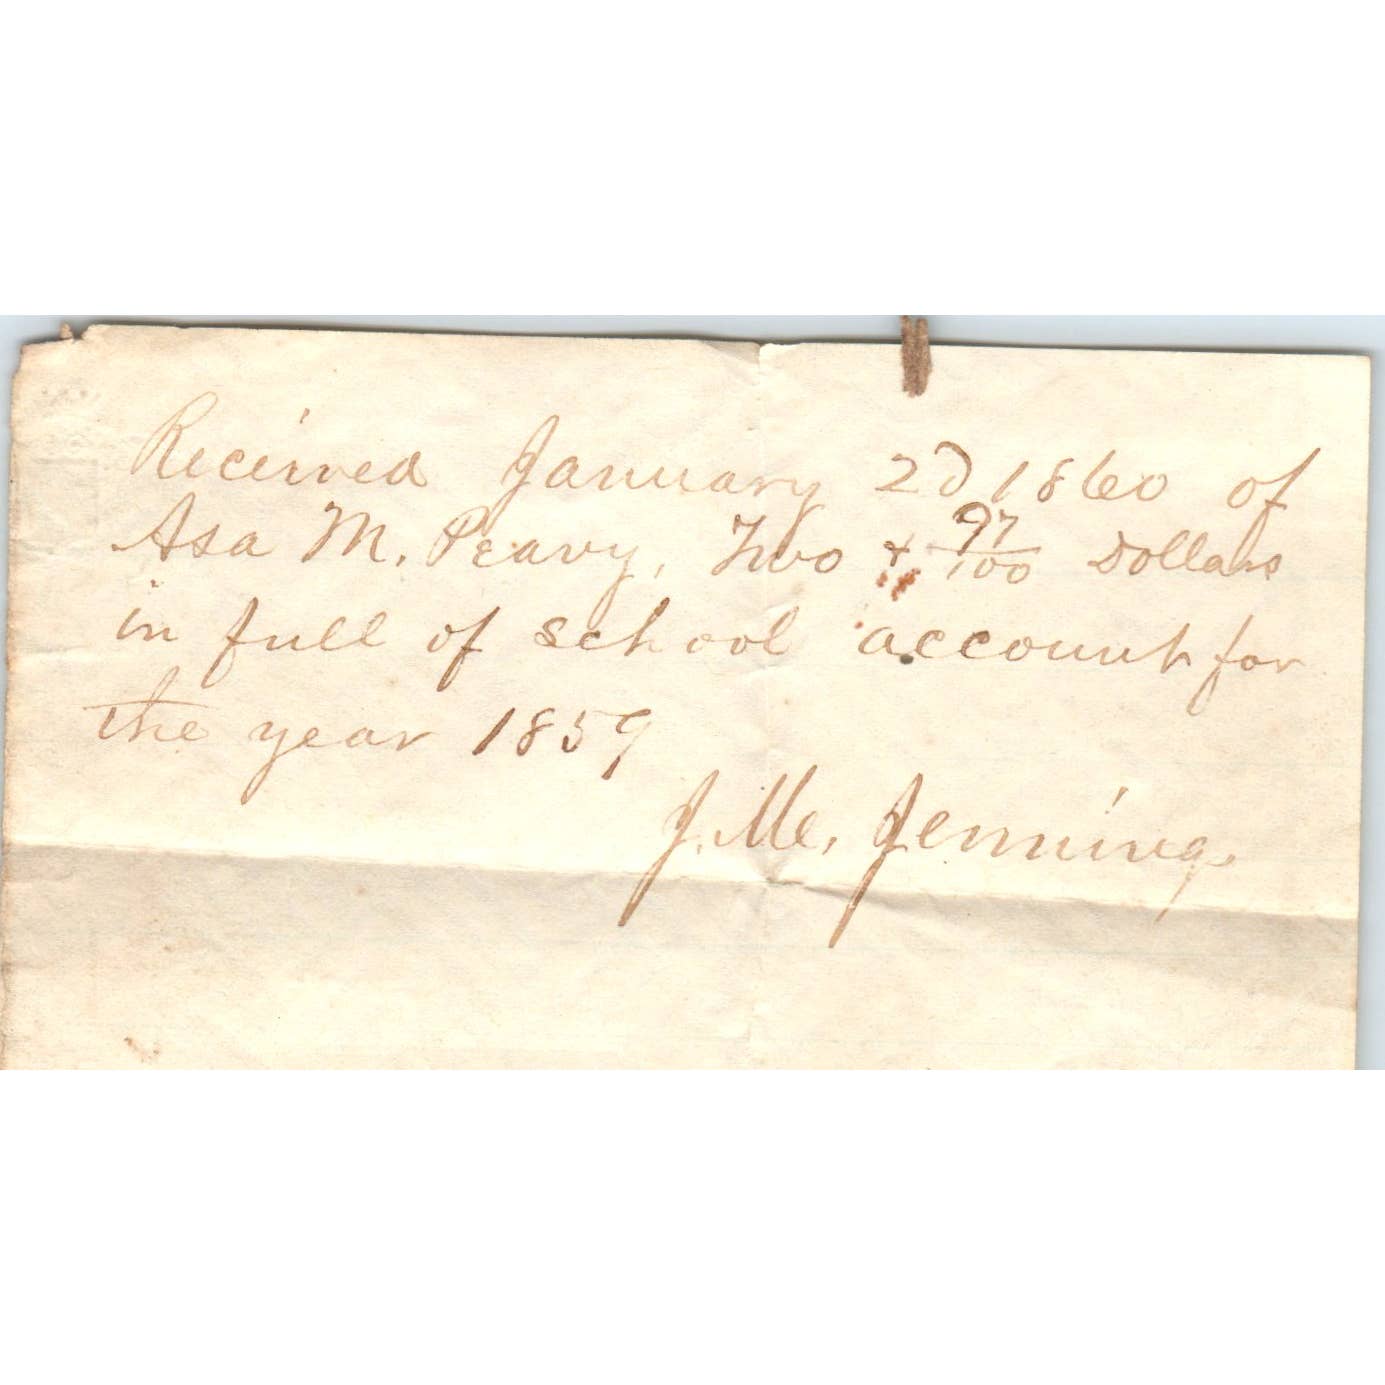 Received January 2d 1860 of
Asa M. Peavy, Two & 97/100 Dollars
in full of school account for
the year 1859
J. Mc. Jennings